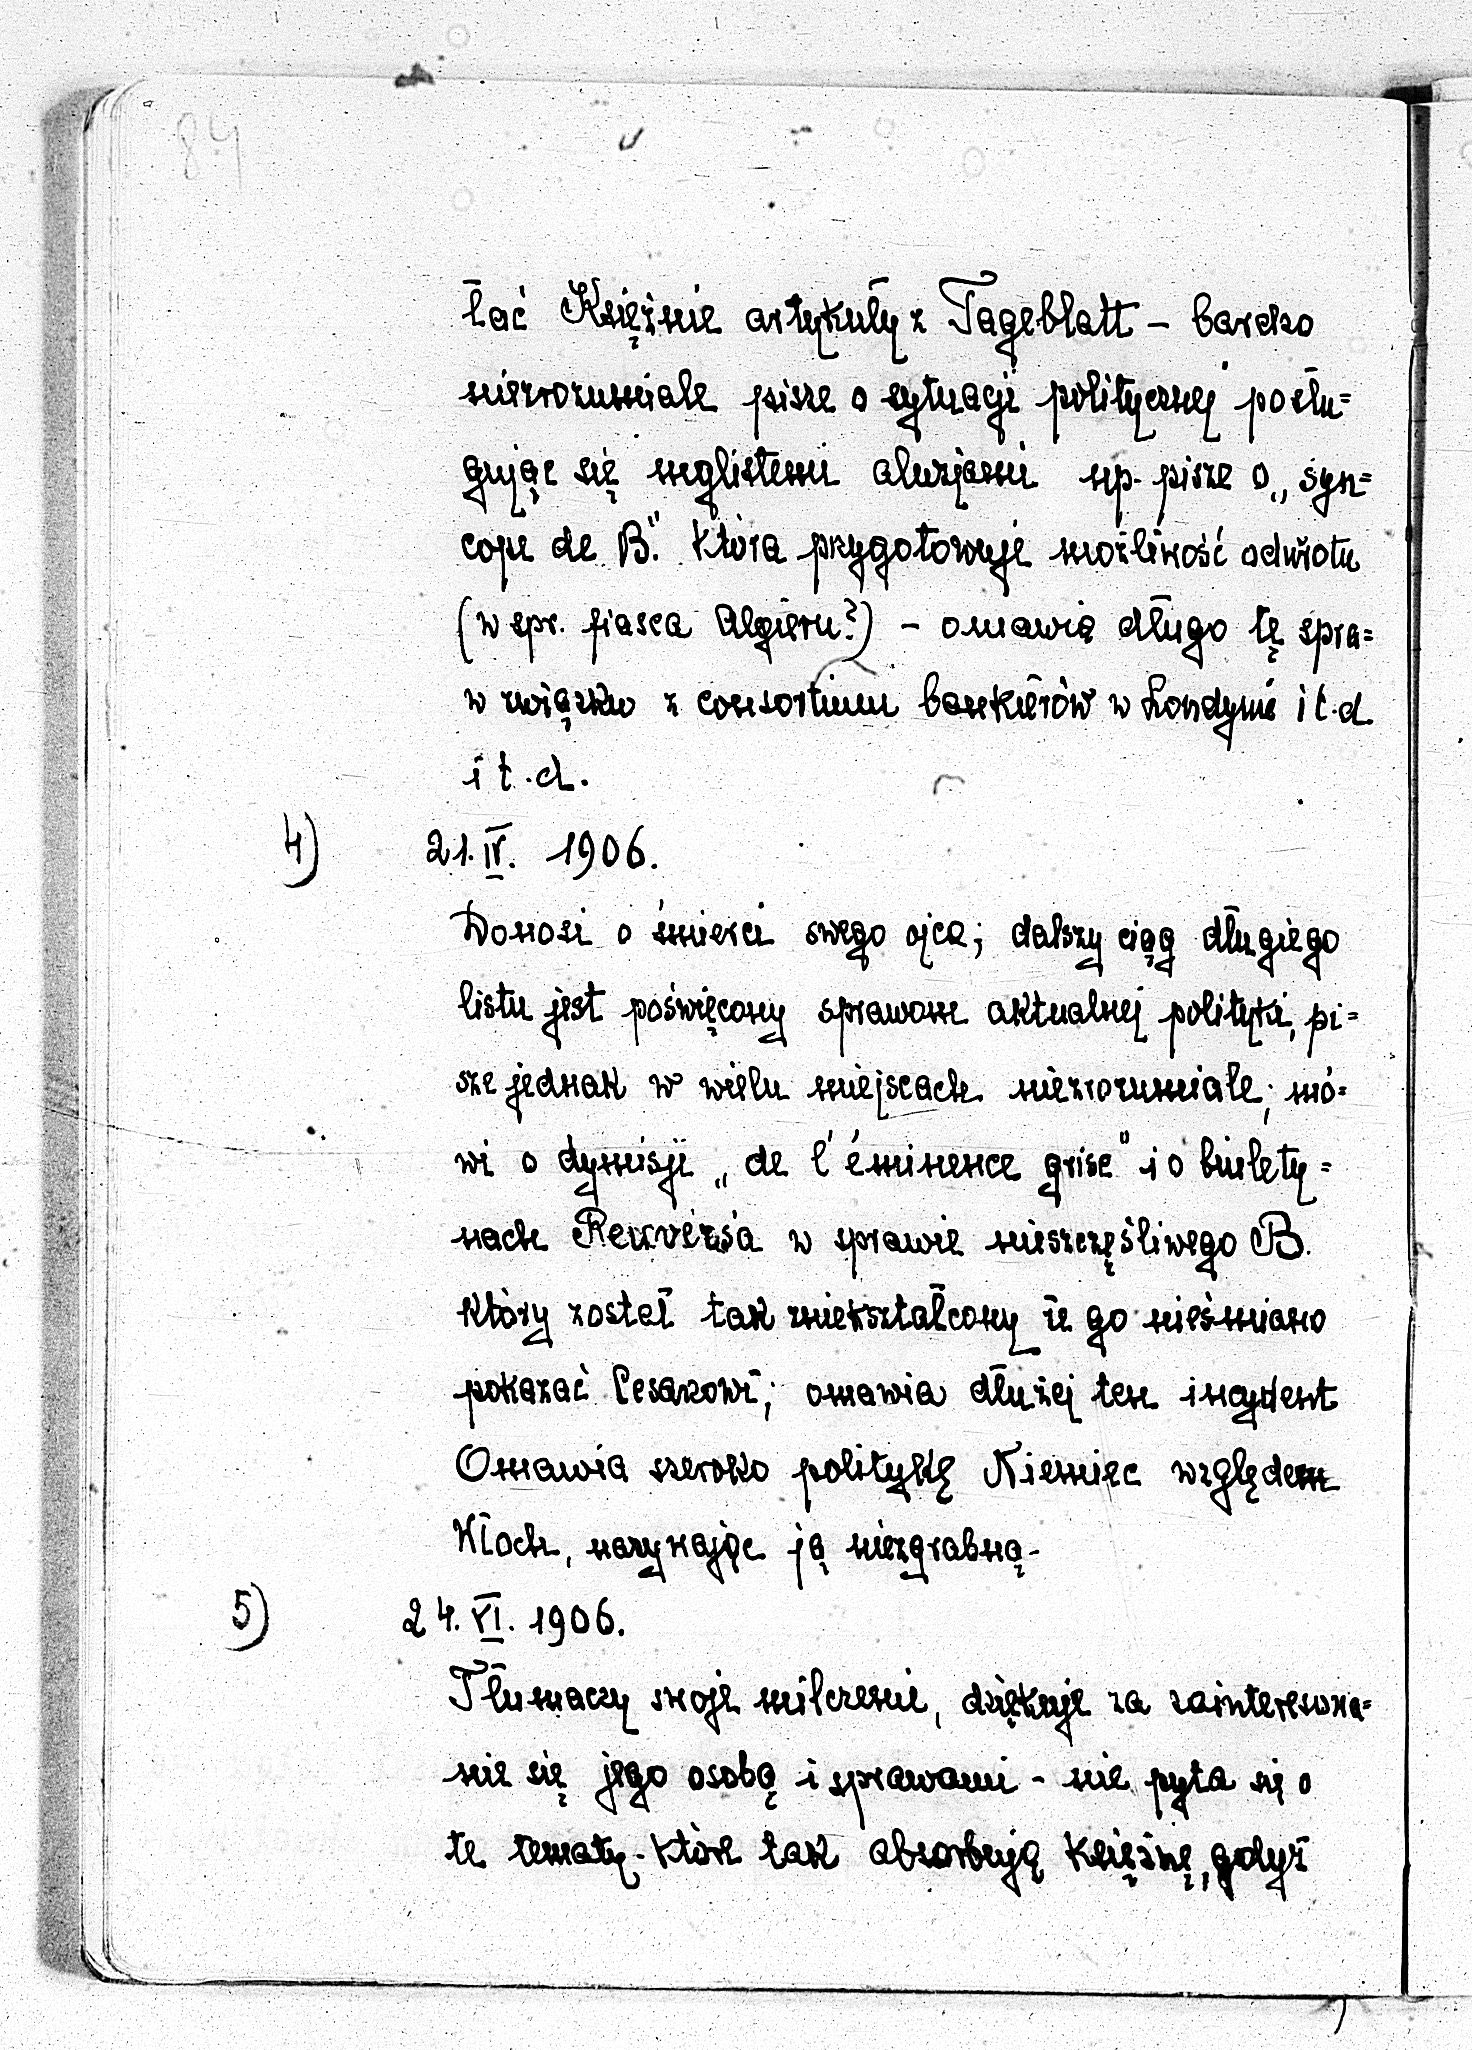 84
łać Księżnie artykuły z Tageblatt – bardzo
niezrozumiale pisze o sytuacji politycznej posłu=
gując się mglistemi aluzjami np. pisze o „syn=
cope de B." która przygotowuje możliwość odwrotu
(w spr. fiasca Algieru?) – omawia długo tę spra=
w związku z consortium bankierów w Londynie i t.d.
i t.d.
4) 21. IV. 1906.
Donosi o śmierci swego ojca; dalszy ciąg długiego
listu jest poświęcony sprawom aktualnej polityki, pi=
sze jednak w wielu miejscach niezrozumiale; mó=
wi o dymisji „de l'éminence grise" i o biulety=
nach Renvers'a w sprawie nieszczęśliwego B.
który został tak zniekształcony że go nieśmiano
pokazać Cesarzowi; omawia dłużej ten incydent
Omawia szeroko politykę Niemiec względem
Włoch, nazywając ją niezgrabną –
5) 24. VI. 1906.
Tłumaczy swoje milczenie, dziękuje za zainteresowa=
nie się jego osobą i sprawami – nie pyta się o
te tematy – które tak absorbują księżnę, gdyż